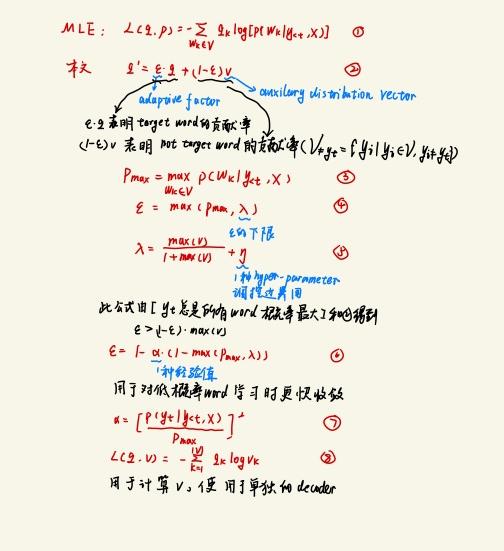 MLE: L(q,p) = -∑_{w_k∈V} q_k log[p(w_k|y_{<t},X)] ①
本文 q' = ε·q + (1-ε)v ②
adaptive factor
auxiliary distribution vector
ε·q 表明 target word 的贡献率
(1-ε)v 表明 not target word 的贡献率 (V_{≠y_t} = {y_i|y_i∈V, y_i≠y_t})
P_max = max_{w_k∈V} p(w_k|y_{<t},X) ③
ε = max(p_max, λ) ④
ε的下限
λ = max(v) / (1+max(v)) + η ⑤
1种hyper-parameter
调控边界用
此公式由[y_t总是所有word概率最大]和②得到
ε > (1-ε)·max(v)
ε = 1-α·(1-max(p_max, λ)) ⑥
1种经验值
用于对低概率word学习时更快收敛
α = [p(y_t|y_{<t},X) / p_max]² ⑦
L(q,v) = -∑_{k=1}^{|V|} q_k log v_k ⑧
用于计算v, 使用了单独的decoder